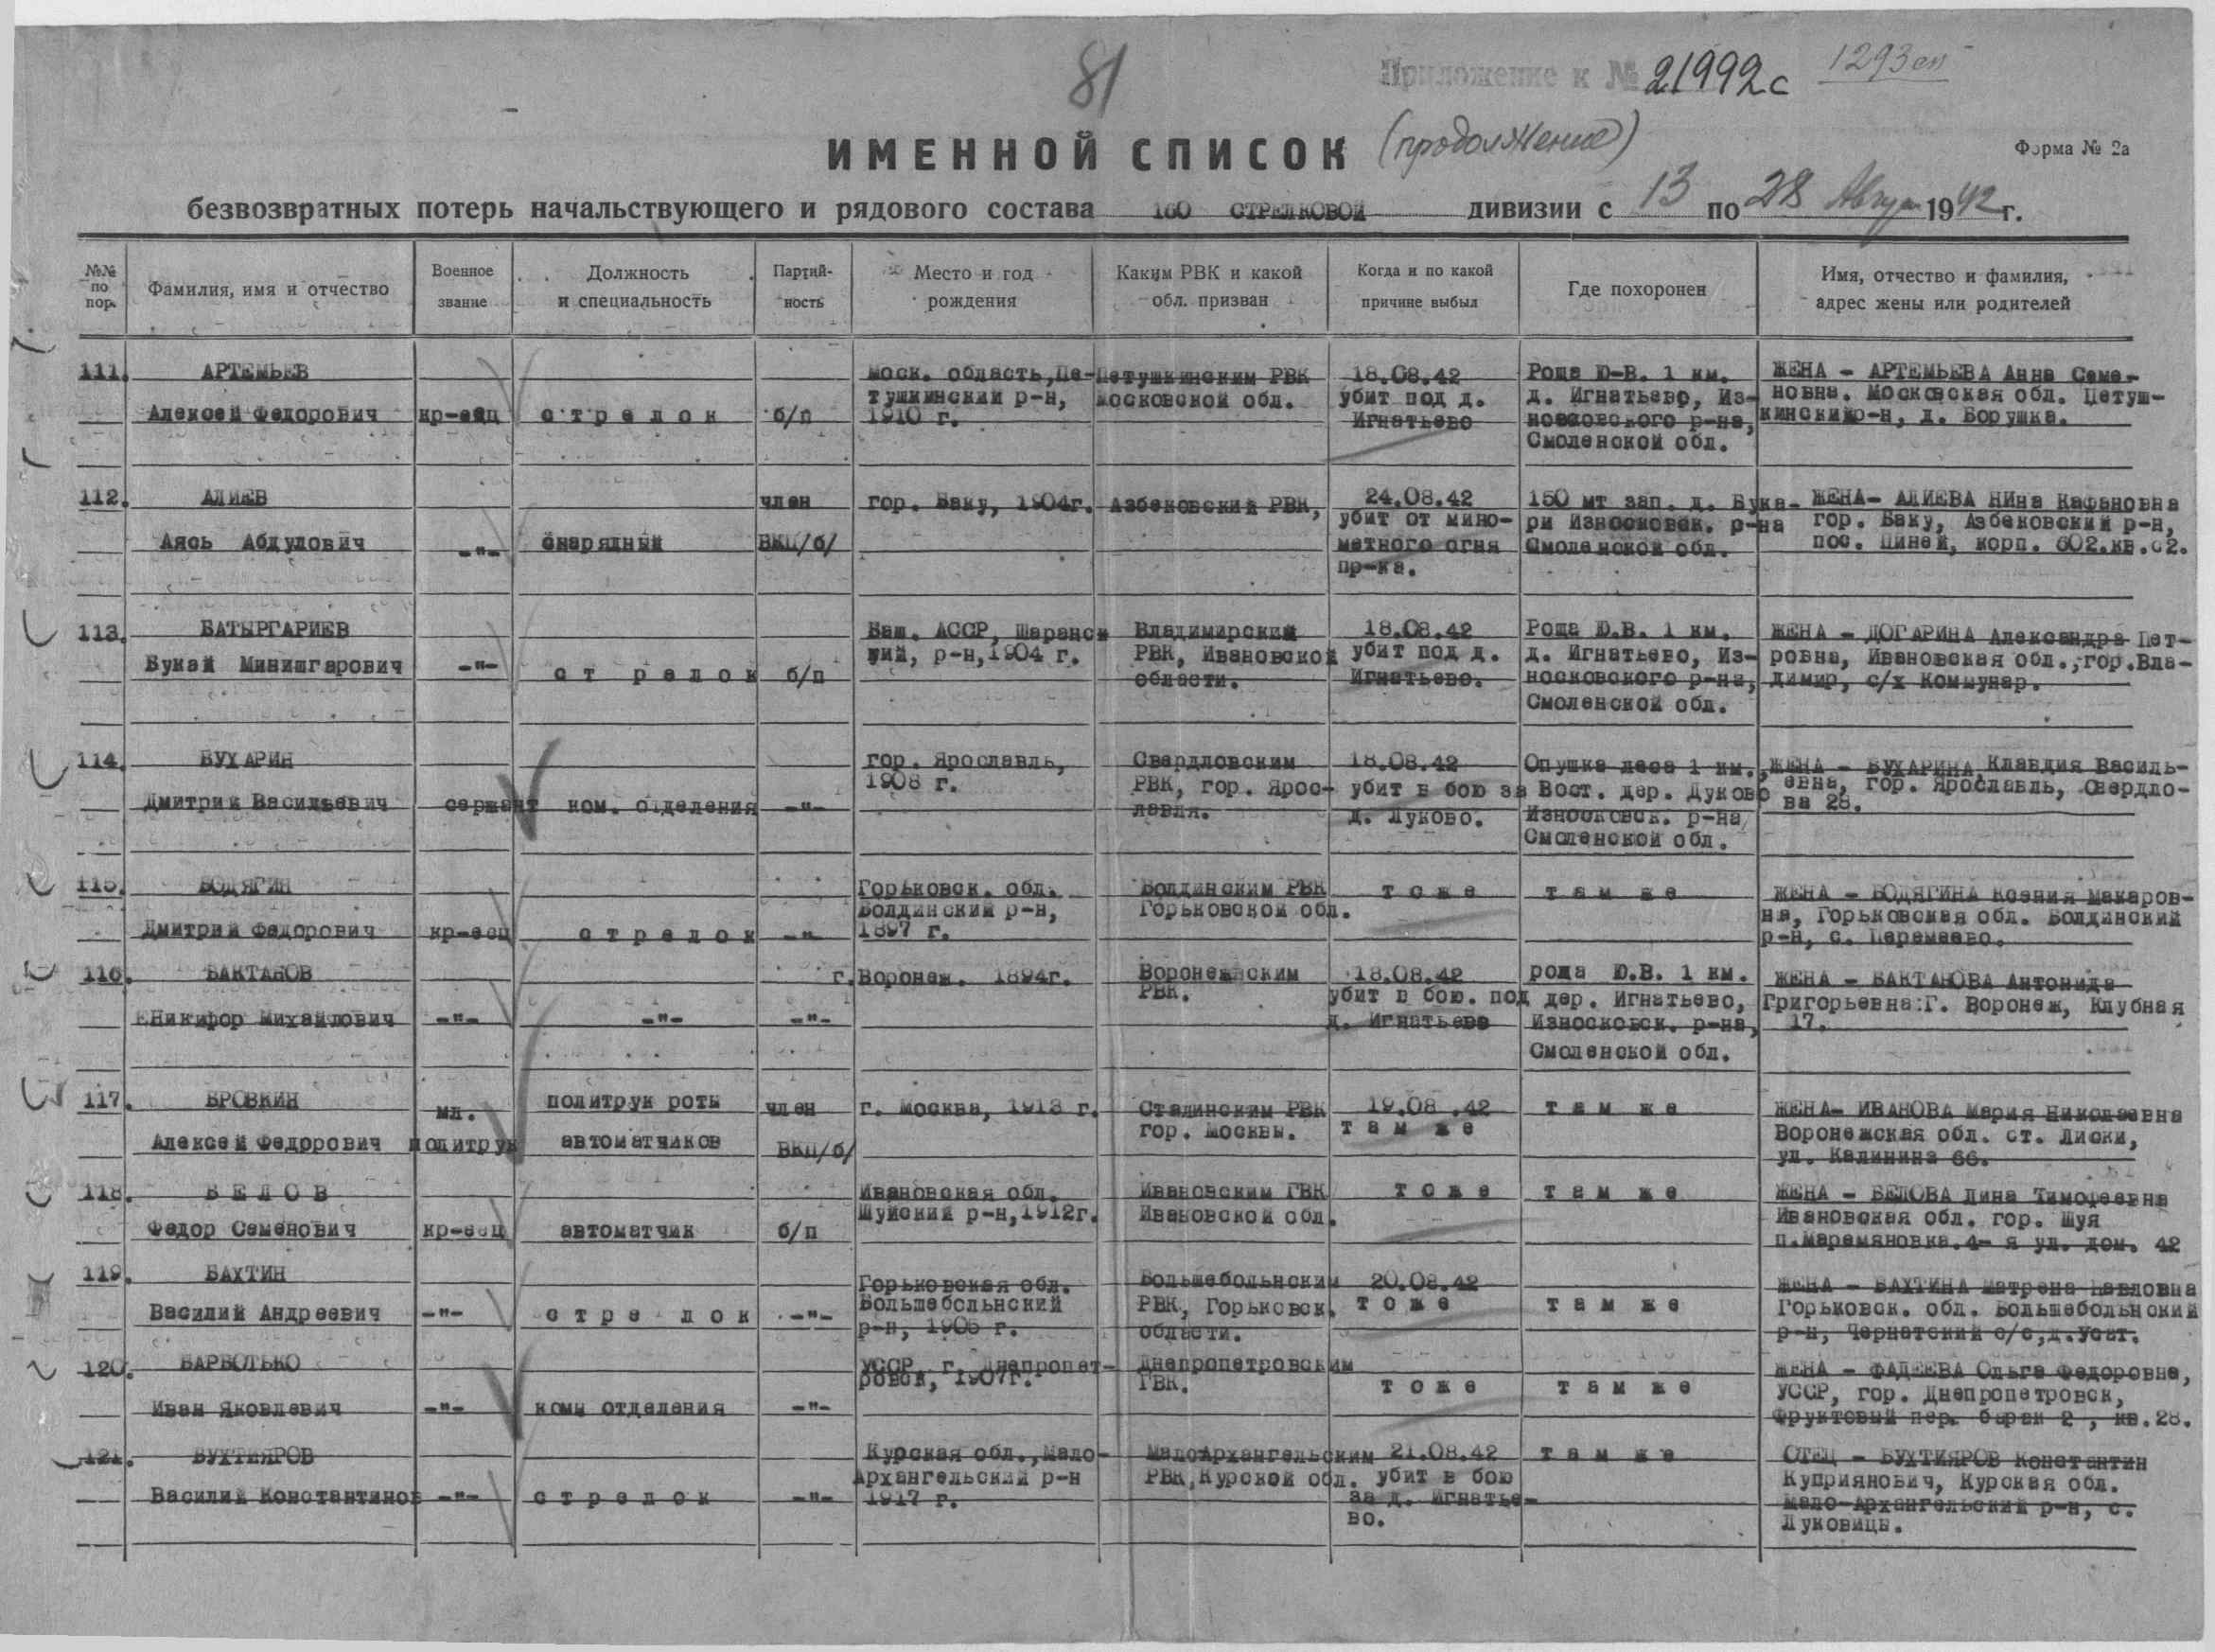 81
Приложение к № 21992с 1293 сп
ИМЕННОЙ СПИСОК (продолжение)
Форма № 2а
безвозвратных потерь начальствующего и рядового состава 160 СТРЕЛКОВОЙ дивизии с 13 по 28 Август 1942 г.
№№ по пор.
Фамилия, имя и отчество
Военное звание
Должность и специальность
Партийность
Место и год рождения
Каким РВК и какой обл. призван
Когда и по какой причине выбыл
Где похоронен
Имя, отчество и фамилия, адрес жены или родителей
111. АРТЕМЬЕВ
Алексей Федорович
кр-еец
стрелок
б/п
Моск. область, Пе-
тушкинский р-н,
1910 г.
Петушкинским РВК
Московской обл.
18.08.42
убит под д.
Игнатьево
Роща Ю-В. 1 км.
д. Игнатьево, Из-
носковского р-на,
Смоленской обл.
ЖЕНА - АРТЕМЬЕВА Анна Семе-
новна. Московская обл. Петуш-
кинский р-н, д. Борушка.
112. АЛИЕВ
Аясь Абдулович
-"-
снарядный
член
ВКП/б/
гор. Баку, 1904г.
Азбековский РВК,
24.08.42
убит от мино-
метного огня
пр-ка.
150 мт зап. д. Бука-
ри Износковск. р-на
Смоленской обл.
ЖЕНА- АЛИЕВА Нина Кафановна
гор. Баку, Азбековский р-н,
пос. Пиней, корп. 602.кв.62.
113. БАТЫРГАРИЕВ
Букай Минишгарович
-"-
ст релок
б/п
Баш. АССР, Шаранс
кий, р-н,1904 г.
Владимирский
РВК, Ивановской
области.
18.08.42
убит под д.
Игнатьево.
Роща Ю.В. 1 км.
д. Игнатьево, Из-
носковского р-на,
Смоленской обл.
ЖЕНА - ДОГАРИНА Александра Пет-
ровна, Ивановская обл.,гор.Вла-
димир, с/х Коммунар.
114. БУХАРИН
Дмитрий Васильевич
сержант
ком. отделения
-"-
гор. Ярославль,
1908 г.
Свердловским
РВК, гор. Ярос-
лавля.
18.08.42
убит в бою за
д. Луково.
Опушка леса 1 км.,
Вост. дер. Луково
Износковск. р-на
Смоленской обл.
ЖЕНА - БУХАРИНА Клавдия Василь-
евна, гор. Ярославль, Свердло-
ва 28.
115. БОДЯГИН
Дмитрий Федорович
кр-еец
стрелок
-"-
Горьковск. обл.
Болдинский р-н,
1897 г.
Болдинским РВК
Горьковской обл.
тоже
там же
ЖЕНА - БОДЯГИНА Ксения Макаров-
на, Горьковская обл. Болдинский
р-н, с. Перемеево.
116. БАКТАНОВ
Никифор Михайлович
-"-
-"-
-"-
г.Воронеж. 1894г.
Воронежским
РВК.
18.08.42
убит в бою. под
д. Игнатьево
роща Ю.В. 1 км.
дер. Игнатьево,
Износковск. р-на,
Смоленской обл.
ЖЕНА - БАКТАНОВА Антонида
Григорьевна:Г. Воронеж, Клубная
17.
117. БРОВКИН
Алексей Федорович
мл.
политрук
политрук роты
автоматчиков
член
ВКП/б/
г. Москва, 1913 г.
Сталинским РВК
гор. Москвы.
19.08.42
там же
там же
ЖЕНА- ИВАНОВА Мария Николаевна
Воронежская обл. ст. Лиски,
ул. Калинина 66.
118. БЕЛОВ
Федор Семенович
кр-еец
автоматчик
б/п
Ивановская обл.
Шуйский р-н,1912г.
Ивановским ГВК
Ивановской обл.
тоже
там же
ЖЕНА - БЕЛОВА Лина Тимофеевна
Ивановская обл. гор. Шуя
п.Маремяновка.4- я ул. дом. 42
119. БАХТИН
Василий Андреевич
-"-
стре лок
-"-
Горьковская обл.
Большебольнский
р-н, 1905 г.
Большебольнским
РВК, Горьковск.
области.
20.08.42
тоже
там же
ЖЕНА - БАХТИНА Матрена Павловна
Горьковск. обл. Большебольнский
р-н, Чернатский с/с,д.Усат.
120. БАРБОТЬКО
Иван Яковлевич
-"-
комы отделения
-"-
УССР, г. Днепропет-
ровск, 1907г.
Днепропетровским
ГВК.
тоже
там же
ЖЕНА - ФАДЕЕВА Ольга Федоровна,
УССР, гор. Днепропетровск,
Фруктовый пер. барак 2, кв.28.
121. БУХТИЯРОВ
Василий Константинов
-"-
стрелок
-"-
Курская обл.,Мало-
Архангельский р-н
1917 г.
МалоАрхангельским
РВК,Курской обл.
21.08.42
убит в бою
за д. Игнатье-
во.
там же
ОТЕЦ - БУХТИЯРОВ Константин
Куприянович, Курская обл.
Мало-Архангельский р-н, с.
Луковицы.